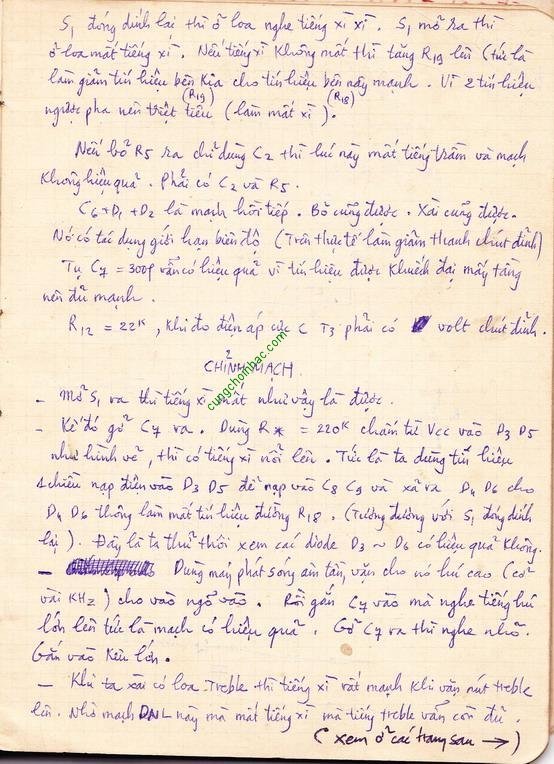 S1 đóng dính lại thì ở loa nghe tiếng xì xì. S1 mở ra thì
ở loa mất tiếng xì. Nếu tiếng xì không mất thì tăng R19 lên (tức là
làm giảm tín hiệu bên kia cho tín hiệu bên này mạnh. Vì 2 tín hiệu
(R19) (R18)
ngược pha nên triệt tiêu (làm mất xì).
Nếu bỏ R5 ra chỉ dùng C2 thì lúc này mất tiếng trầm và mạch
không hiệu quả. Phải có C2 và R5.
C6+D1+D2 là mạch hồi tiếp. Bỏ cũng được. Xài cũng được.
Nó có tác dụng giới hạn biên độ (Trên thực tế làm giảm thanh chút đỉnh)
Tụ C7 = 300p vẫn có hiệu quả vì tín hiệu được khuếch đại mấy tầng
nên đủ mạnh.
R12 = 22K, khi đo điện áp cực C T3 phải có volt chút đỉnh.
2
CHỈNH MẠCH
cungchoinhac.com
- Mở S1 ra thì tiếng xì mất như vậy là được.
- Kế đó gỡ C7 ra. Dùng R* = 220K chấm từ Vcc vào D3 D5
như hình vẽ, thì có tiếng xì nổi lên. Tức là ta dùng tín hiệu
1 chiều nạp điện vào D3 D5 để nạp vào C8 C9 và xả ra D4 D6 cho
D4 D6 thông làm mất tín hiệu đường R18. (Tương đương với S1 đóng dính
lại). Đây là ta thử thôi xem các diode D3 ~ D6 có hiệu quả không.
- Dùng máy phát sóng âm tần, vặn cho nó hú cao (cỡ
vài KHz) cho vào ngõ vào. Rồi gắn C7 vào mà nghe tiếng hú
lớn lên tức là mạch có hiệu quả. Gỡ C7 ra thì nghe nhỏ.
Gắn vào kêu lớn.
- Khi ta xài có loa Treble thì tiếng xì rất mạnh khi vặn nút treble
lên. Nhờ mạch DNL này mà mất tiếng xì mà tiếng treble vẫn còn đủ.
(xem ở các trang sau →)